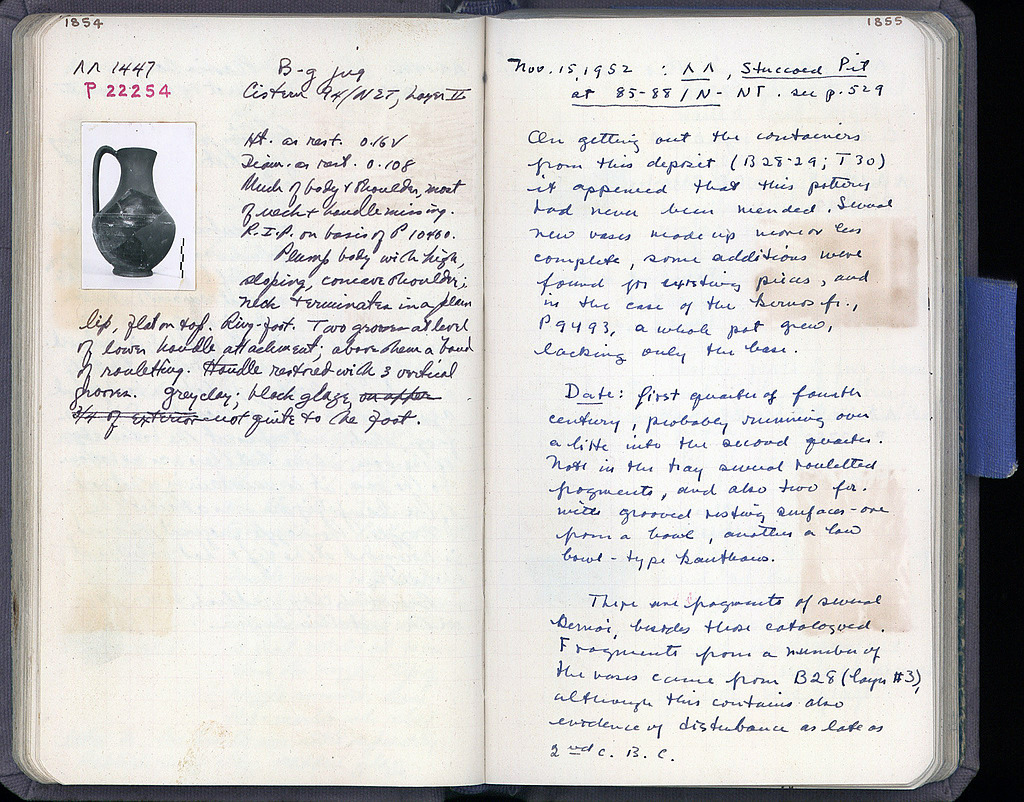 1854
ΛΛ 1447
P 22254
B-g jug
Cistern 94/ΝΣΤ, Layer II
Ht. as rest. 0.16
Diam. as rest. 0.108
Much of body & shoulder, most
of neck & handle missing.
R.I.P. on basis of P 10460.
Plump body with high,
sloping, concave shoulder;
neck terminates in a plain
lip, flat on top. Ring-foot. Two grooves at level
of lower handle attachment; above them a band
of rouletting. Handle restored with 3 vertical
grooves. Grey clay; black glaze on upper
3/4 of exterior not quite to the foot.
1855
Nov. 15, 1952 : ΛΛ, Stuccoed Pit
at 85-88/Ν- ΝΤ. see p. 529
On getting out the containers
from this deposit (B28-29; T30)
it appeared that this pottery
had never been mended. Several
new vases made up more or less
complete, some additions were
found for existing pieces, and
in the case of the kernos fr.,
P9493, a whole pot grew,
lacking only the base.
Date: first quarter of fourth
century, probably running over
a little into the second quarter.
Note in the tray several rouletted
fragments, and also two fr.
with grooved resting surfaces - one
from a bowl, another a low
bowl-type kantharos.
There are fragments of several
kernoi, besides those catalogued.
Fragments from a number of
the vases came from B28 (layer #3),
although this contains also
evidence of disturbance as late as
2nd c. B.C.